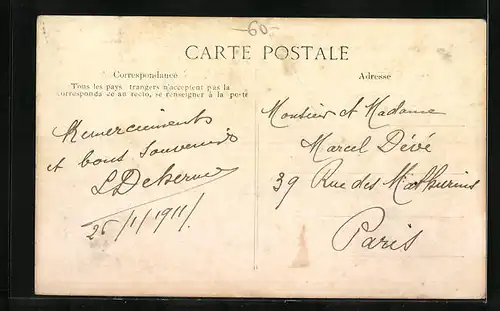 60-
CARTE POSTALE
Correspondance
Tous les pays trangers n'acceptent pas la
corresponda ce au recto, se renseigner à la poste
Remerciements
et bons souvenirs
26/1/1911
Adresse
Monsieur et Madame
Marcel Dévé
39 Rue des Mathurins
Paris